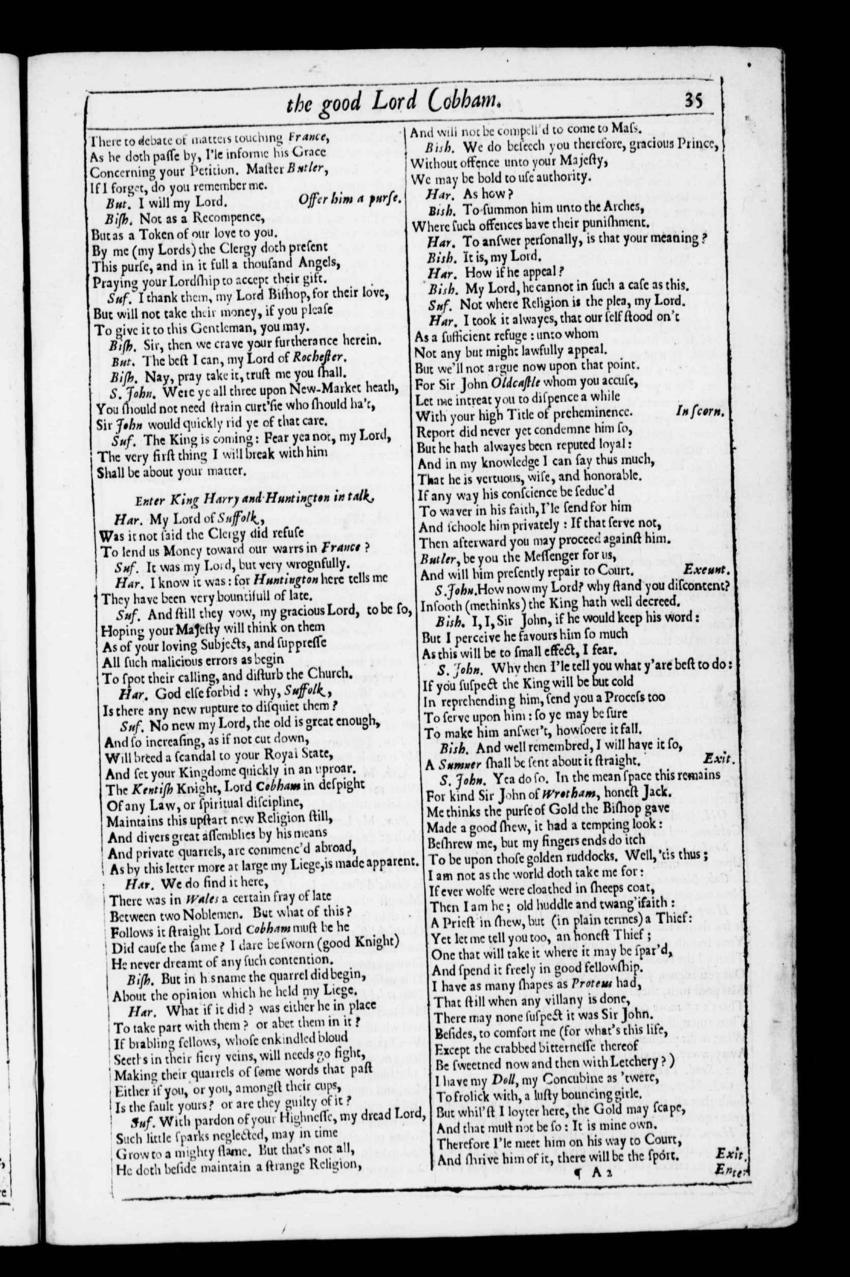 the good Lord Cobham. 35
There to debate of matters touching France,
As he doth paſſe by, I'le informe his Grace
Concerning your Petition. Maſter Butler,
If I forget, do you remember me.
But. I will my Lord. Offer him a purſe.
Biſh. Not as a Recompence,
But as a Token of our love to you.
By me (my Lords) the Clergy doth preſent
This purſe, and in it full a thouſand Angels,
Praying your Lordſhip to accept their gift.
Suf. I thank them, my Lord Biſhop, for their love,
But will not take their money, if you pleaſe
To give it to this Gentleman, you may.
Biſh. Sir, then we crave your furtherance herein.
But. The beſt I can, my Lord of Rocheſter.
Biſh. Nay, pray take it, truſt me you ſhall.
S. John. Were ye all three upon New-Market heath,
You ſhould not need ſtrain curt'ſie who ſhould ha't,
Sir John would quickly rid ye of that care.
Suf. The King is coming: Fear yea not, my Lord,
The very firſt thing I will break with him
Shall be about your matter.
Enter King Harry and Huntington in talk.
Har. My Lord of Suffolk,
Was it not ſaid the Clergy did refuſe
To lend us Money toward our warrs in France?
Suf. It was my Lord, but very wrognfully.
Har. I know it was: for Huntington here tells me
They have been very bountifull of late.
Suf. And ſtill they vow, my gracious Lord, to be ſo,
Hoping your Majeſty will think on them
As of your loving Subjects, and ſuppreſſe
All ſuch malicious errors as begin
To ſpot their calling, and diſturb the Church.
Har. God elſe forbid: why, Suffolk,
Is there any new rupture to diſquiet them?
Suf. No new my Lord, the old is great enough,
And ſo increaſing, as if not cut down,
Will breed a ſcandal to your Royal State,
And ſet your Kingdome quickly in an uproar.
The Kentiſh Knight, Lord Cobham in deſpight
Of any Law, or ſpiritual diſcipline,
Maintains this upſtart new Religion ſtill,
And divers great aſſemblies by his means
And private quarrels, are commenc'd abroad,
As by this letter more at large my Liege, is made apparent.
Har. We do find it here,
There was in Wales a certain fray of late
Between two Noblemen. But what of this?
Follows it ſtraight Lord Cobham muſt be he
Did cauſe the ſame? I dare be ſworn (good Knight)
He never dreamt of any ſuch contention.
Biſh. But in h s name the quarrel did begin,
About the opinion which he held my Liege.
Har. What if it did? was either he in place
To take part with them? or abet them in it?
If brabling fellows, whoſe enkindled bloud
Seeths in their fiery veins, will needs go fight,
Making their quarrels of ſome words that paſt
Either if you, or you, amongſt their cups,
Is the fault yours? or are they guilty of it?
Suf. With pardon of your Highneſſe, my dread Lord,
Such little ſparks neglected, may in time
Grow to a mighty flame. But that's not all,
He doth beſide maintain a ſtrange Religion,
And will not be compell'd to come to Maſs.
Bish. We do beſeech you therefore, gracious Prince,
Without offence unto your Majeſty,
We may be bold to uſe authority.
Har. As how?
Bish. To ſummon him unto the Arches,
Where ſuch offences have their puniſhment.
Har. To anſwer perſonally, is that your meaning?
Bish. It is, my Lord.
Har. How if he appeal?
Bish. My Lord, he cannot in ſuch a caſe as this.
Suf. Not where Religion is the plea, my Lord.
Har. I took it alwayes, that our ſelf ſtood on't
As a ſufficient refuge: unto whom
Not any but might lawfully appeal.
But we'll not argue now upon that point.
For Sir John Oldcaſtle whom you accuſe,
Let me intreat you to diſpence a while
With your high Title of preheminence. In ſcorn.
Report did never yet condemne him ſo,
But he hath alwayes been reputed loyal:
And in my knowledge I can ſay thus much,
That he is vertuous, wiſe, and honorable.
If any way his conſcience be ſeduc'd
To waver in his faith, I'le ſend for him
And ſchoole him privately: If that ſerve not,
Then afterward you may proceed againſt him.
Butler, be you the Meſſenger for us,
And will him preſently repair to Court. Exeunt.
S. John. How now my Lord? why ſtand you diſcontent?
Inſooth (methinks) the King hath well decreed.
Bish. I, I, Sir John, if he would keep his word:
But I perceive he favours him ſo much
As this will be to ſmall effect, I fear.
S. John. Why then I'le tell you what y'are beſt to do:
If you ſuſpect the King will be but cold
In reprehending him, ſend you a Proceſs too
To ſerve upon him: ſo ye may be ſure
To make him anſwer't, howſoere it fall.
Bish. And well remembred, I will have it ſo,
A Sumner ſhall be ſent about it ſtraight. Exit.
S. John. Yea do ſo. In the mean ſpace this remains
For kind Sir John of Wrotham, honeſt Jack.
Me thinks the purſe of Gold the Biſhop gave
Made a good ſhew, it had a tempting look:
Beſhrew me, but my fingers ends do itch
To be upon thoſe golden ruddocks. Well, 'tis thus;
I am not as the world doth take me for:
If ever wolfe were cloathed in ſheeps coat,
Then I am he; old huddle and twang 'ifaith:
A Prieſt in ſhew, but (in plain termes) a Thief:
Yet let me tell you too, an honeſt Thief;
One that will take it where it may be ſpar'd,
And ſpend it freely in good fellowſhip.
I have as many ſhapes as Proteus had,
That ſtill when any villany is done,
There may none ſuſpect it was Sir John.
Beſides, to comfort me (for what's this life,
Except the crabbed bitterneſſe thereof
Be ſweetned now and then with Letchery?)
I have my Doll, my Concubine as 'twere,
To frolick with, a luſty bouncing girle.
But whil'ſt I loyter here, the Gold may ſcape,
And that muſt not be ſo: It is mine own.
Therefore I'le meet him on his way to Court,
And ſhrive him of it, there will be the ſport. Exit.
¶ A 2 Enter